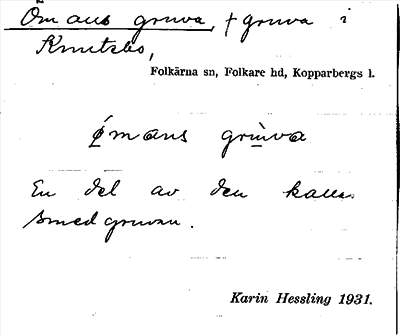 Öm ans gruva, † gruva i
Knutsbo,
Folkärna sn, Folkare hd, Kopparbergs l.
ǿmans grùva
En del av den kallas
Smedgruvan.
Karin Hessling 1931.